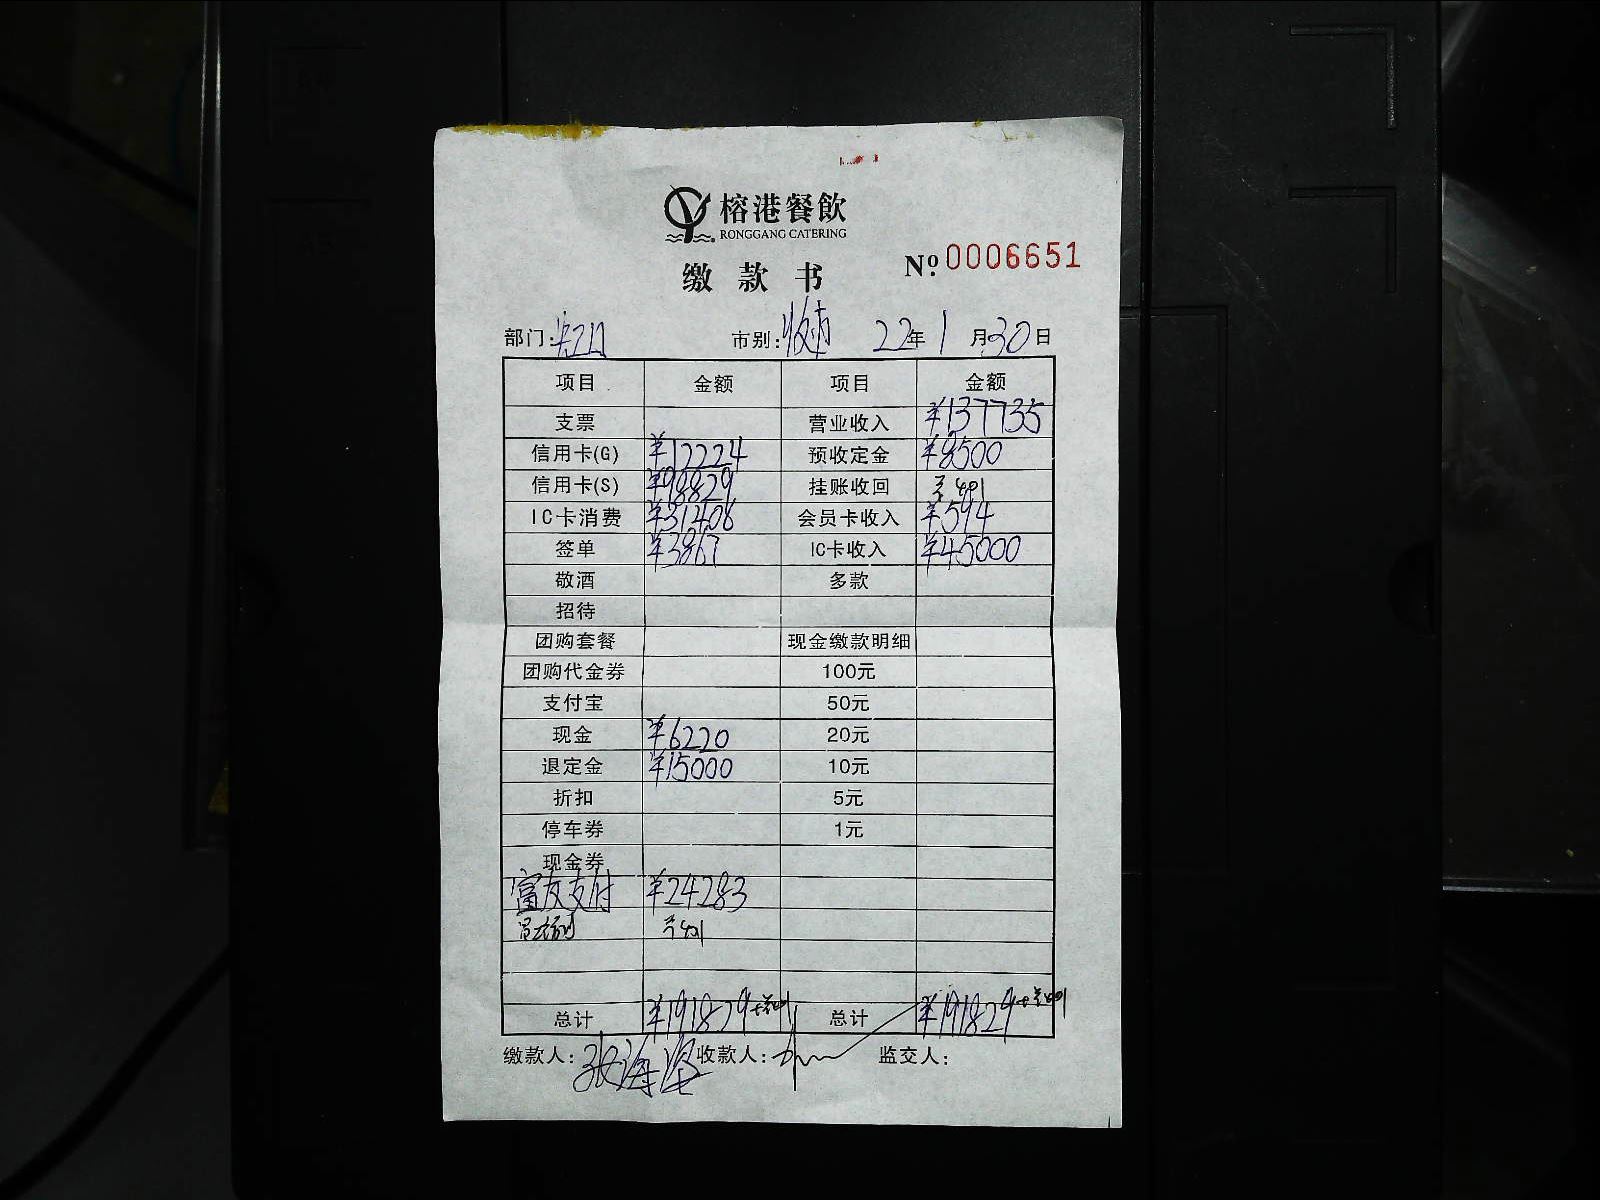 榕港餐飲
RONGGANG CATERING
缴款书
№:0006651
部门: 市别: 22年1月30日
项目 金额 项目 金额
支票 营业收入 ¥137735
信用卡(G) ¥12224 预收定金 ¥8500
信用卡(S) ¥98829 挂账收回
IC卡消费 ¥31406 会员卡收入 ¥594
签单 ¥3867 IC卡收入 ¥45000
敬酒 多款
招待
团购套餐 现金缴款明细
团购代金券 100元
支付宝 50元
现金 ¥6220 20元
退定金 ¥15000 10元
折扣 5元
停车券 1元
现金券
富友支付 ¥24283
总计 ¥191829 总计 ¥191829
缴款人: 张海 收款人: 监交人: